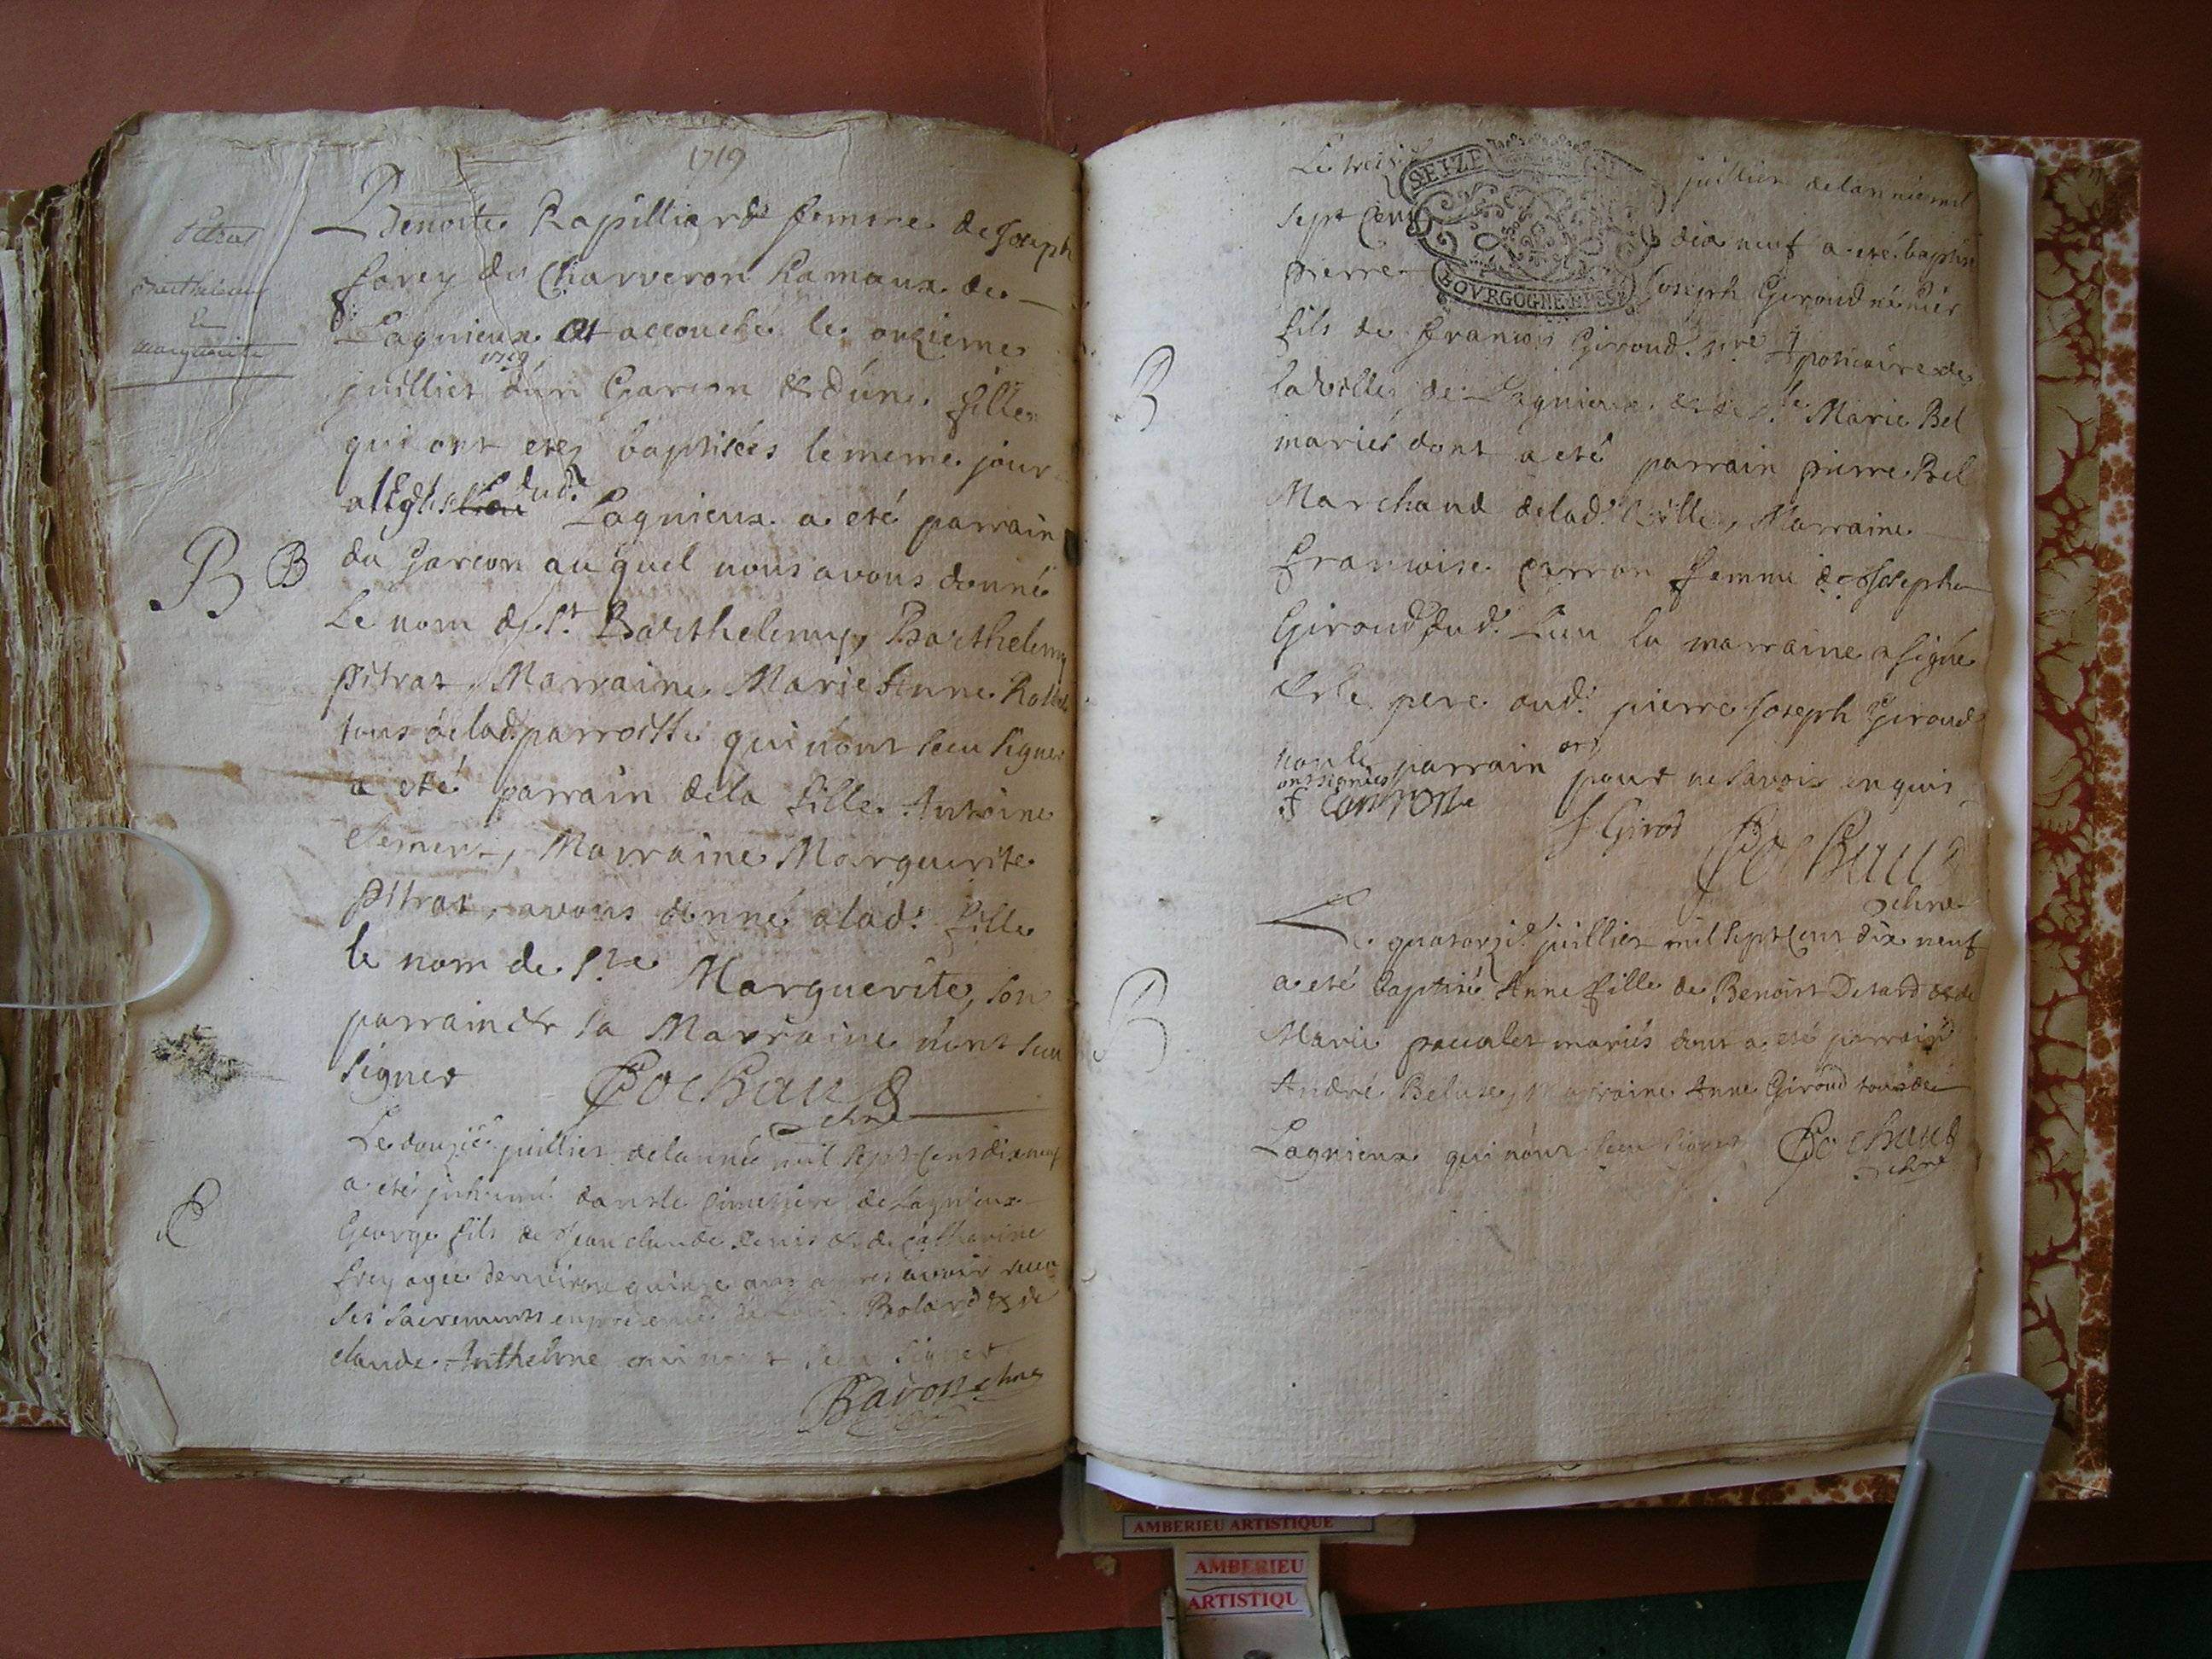 1719
Benoite Rapilliard femme de Joseph
farey du Charveron hamaux de
Lagnieux at accouche le onzieme
juillier 1719 d'un Garcon & d'une fille
qui ont etez baptisées le meme jour
a l'Eglise dud. Lagnieux a eté parrain
du Garcon au quel nous avons donné
Le nom de St. Barthelemy, Barthelemy
pitrat, Marraine Marie Anne
tous de lad. parroisse qui n'ont sceu signer
a eté parrain de la fille Antoine
clement, Marraine Marguerite
pitrat, avons donné a lad. fille
le nom de Ste Marguerite, son
parrain & sa Marraine n'ont sceu
signer Cochaud
chne
marguerite
B B
Le douzie juillier de l'année mil sept cens dix neuf
a eté inhumé dans le cimetiere de Lagnieux
George fils de Jean claude Denis & de catherine
frey agée d'environ quinze ans apres avoir receu
ses sacrements en presence de Bolard & de
claude Anthelme qui n'ont sceu signer
Bavon chne
Le treizie juillier de l'année mil
SEIZE
sept cens dix neuf a eté baptisé
pierre Joseph Giroud né hier
BOVRGOGNE BRESSE
fils de francois Giroud Apoticaire de
la ville de Lagnieux & de Marie Bel
mariés dont a eté parrain pierre Bel
Marchand de lad. Ville, Marraine
francoise carron femme de Joseph
Giroud dud. Lieu la marraine a signé
& le pere dud. pierre Joseph Giroud
non le parrain pour ne savoir enquis
ont signés
f carron
f Girod
Cochaud
chne
B
Le quatorzie juillier mil sept cens dix neuf
a eté baptisé Anne fille de Benoist Detard & de
Marie mariés dont a eté parrain
André Beluze, marraine Anne Giroud tous de
Lagnieux qui n'ont sceu signer Cochaud
chne
B
AMBERIEU ARTISTIQUE
AMBERIEU
ARTISTIQU